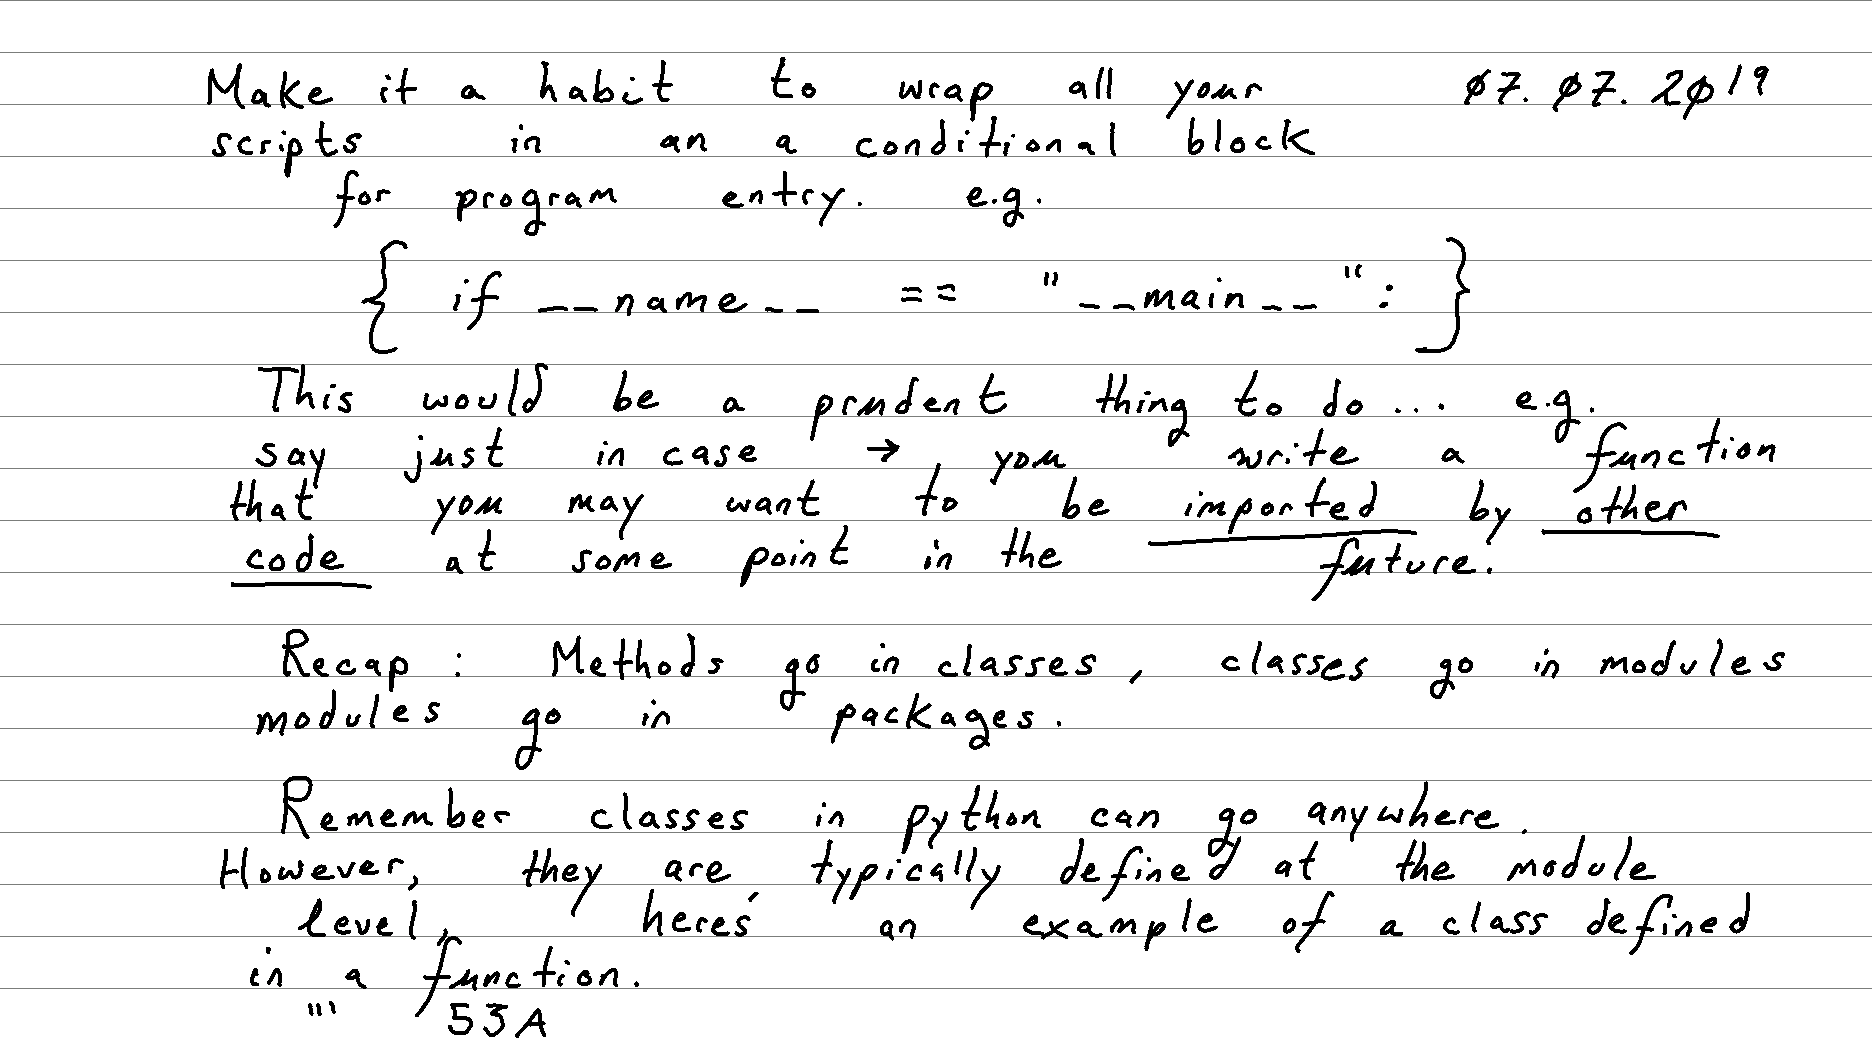 Make it a habit to wrap all your 07.07.2019
scripts in an a conditional block
for program entry. e.g.
{ if __name__ == "__main__": }
This would be a prudent thing to do... e.g.
say just in case →, you write a function
that you may want to be imported by other
code at some point in the future.
Recap : Methods go in classes, classes go in modules
modules go in packages.
Remember classes in python can go anywhere.
However, they are typically defined at the module
level, here's an example of a class defined
in a function.
"' 53A